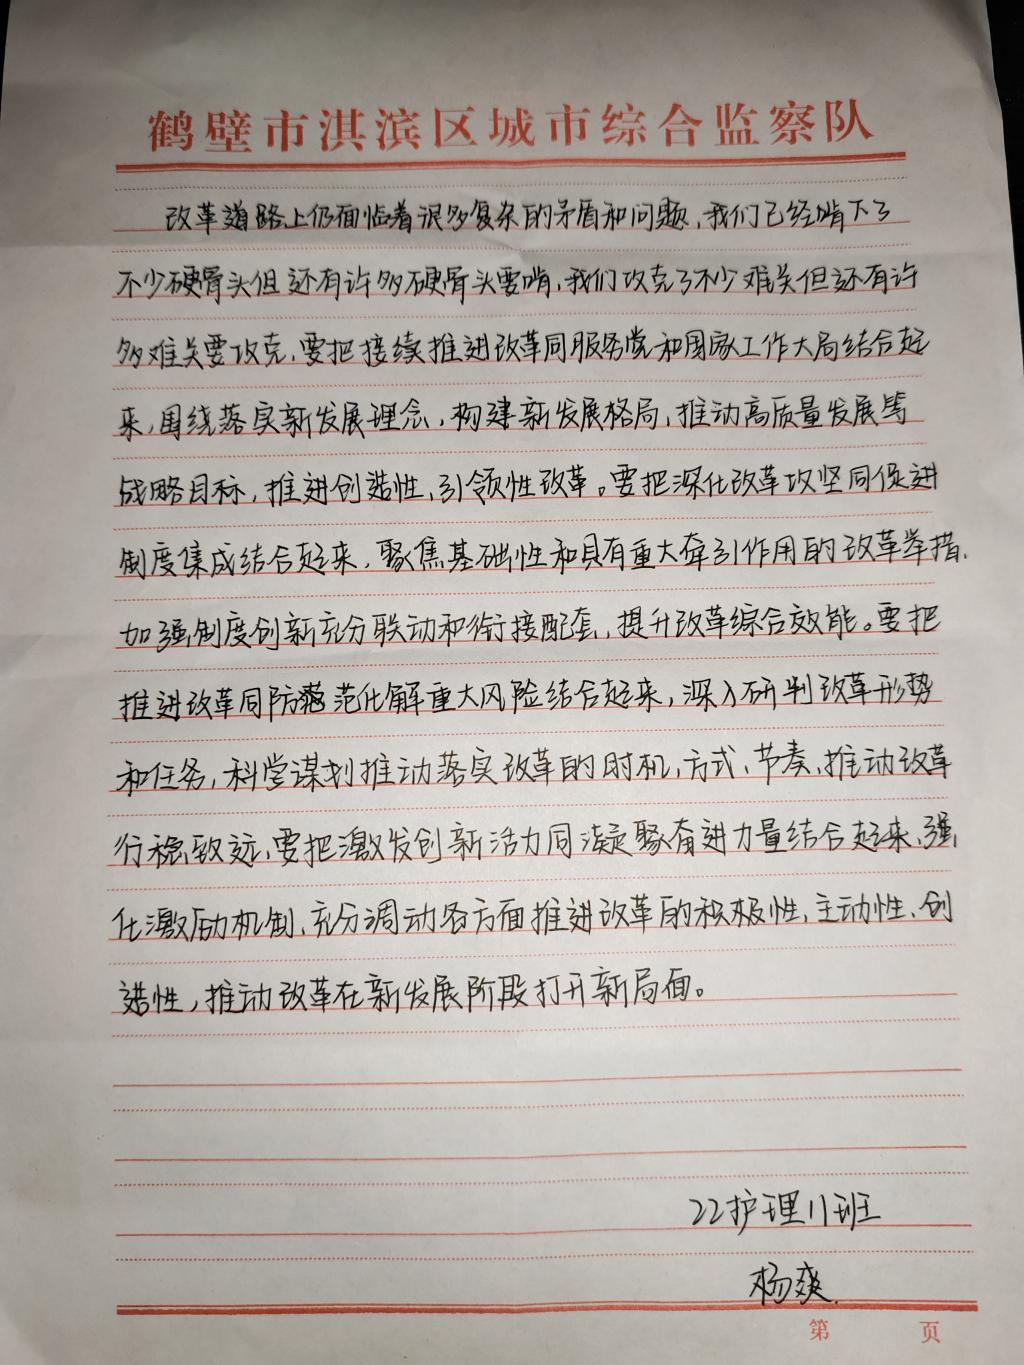 鹤壁市淇滨区城市综合监察队
改革道路上仍面临着很多复杂的矛盾和问题,我们已经啃下了
不少硬骨头但还有许多硬骨头要啃,我们攻克了不少难关但还有许
多难关要攻克,要把接续推进改革同服务党和国家工作大局结合起
来,围绕落实新发展理念,构建新发展格局,推动高质量发展等
战略目标,推进创造性,引领性改革。要把深化改革攻坚同促进
制度集成结合起来,聚焦基础性和具有重大牵引作用的改革举措,
加强制度创新充分联动和衔接配套,提升改革综合效能。要把
推进改革同防范化解重大风险结合起来,深入研判改革形势
和任务,科学谋划推动落实改革的时机,方式、节奏,推动改革
行稳致远,要把激发创新活力同凝聚奋进力量结合起来,强
化激励机制,充分调动各方面推进改革的积极性,主动性、创
造性,推动改革在新发展阶段打开新局面。
22护理11班
杨爽
第 页